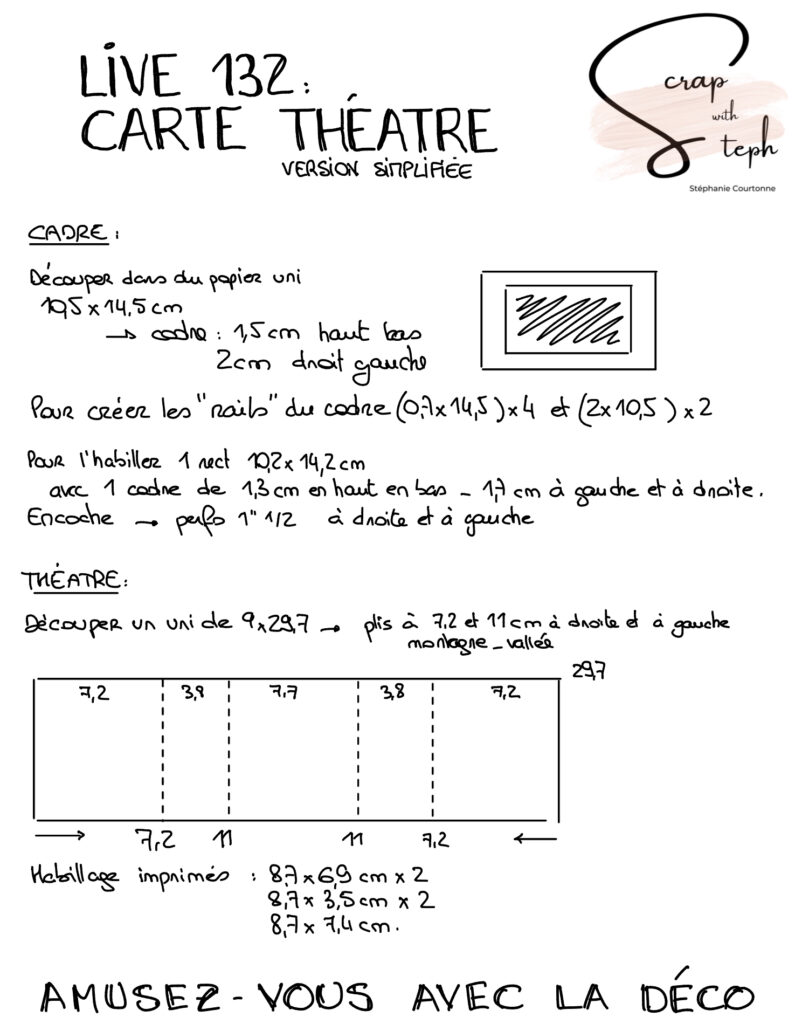 LIVE 132:
CARTE THÉATRE
VERSION SIMPLIFIÉE
Scrap
with
Steph
Stéphanie Courtonne
CADRE :
Découper dans du papier uni
10,5 x 14,5 cm
→ cadre : 1,5 cm haut bas
2cm droit gauche
Pour créer les "rails" du cadre (0,7x14,5) x 4 et (2x10,5) x 2
Pour l'habiller 1 rect 10,2 x 14,2 cm
avec 1 cadre de 1,3 cm en haut en bas - 1,7 cm à gauche et à droite.
Encoche → perfo 1" 1/2 à droite et à gauche
THÉATRE :
Découper un uni de 9x29,7 → plis à 7,2 et 11 cm à droite et à gauche
montagne - vallée
29,7
7,2 3,8 7,7 3,8 7,2
→ 7,2 11 11 7,2 ←
Habillage imprimés : 8,7 x 6,9 cm x 2
8,7 x 3,5 cm x 2
8,7 x 7,4 cm.
AMUSEZ-VOUS AVEC LA DÉCO